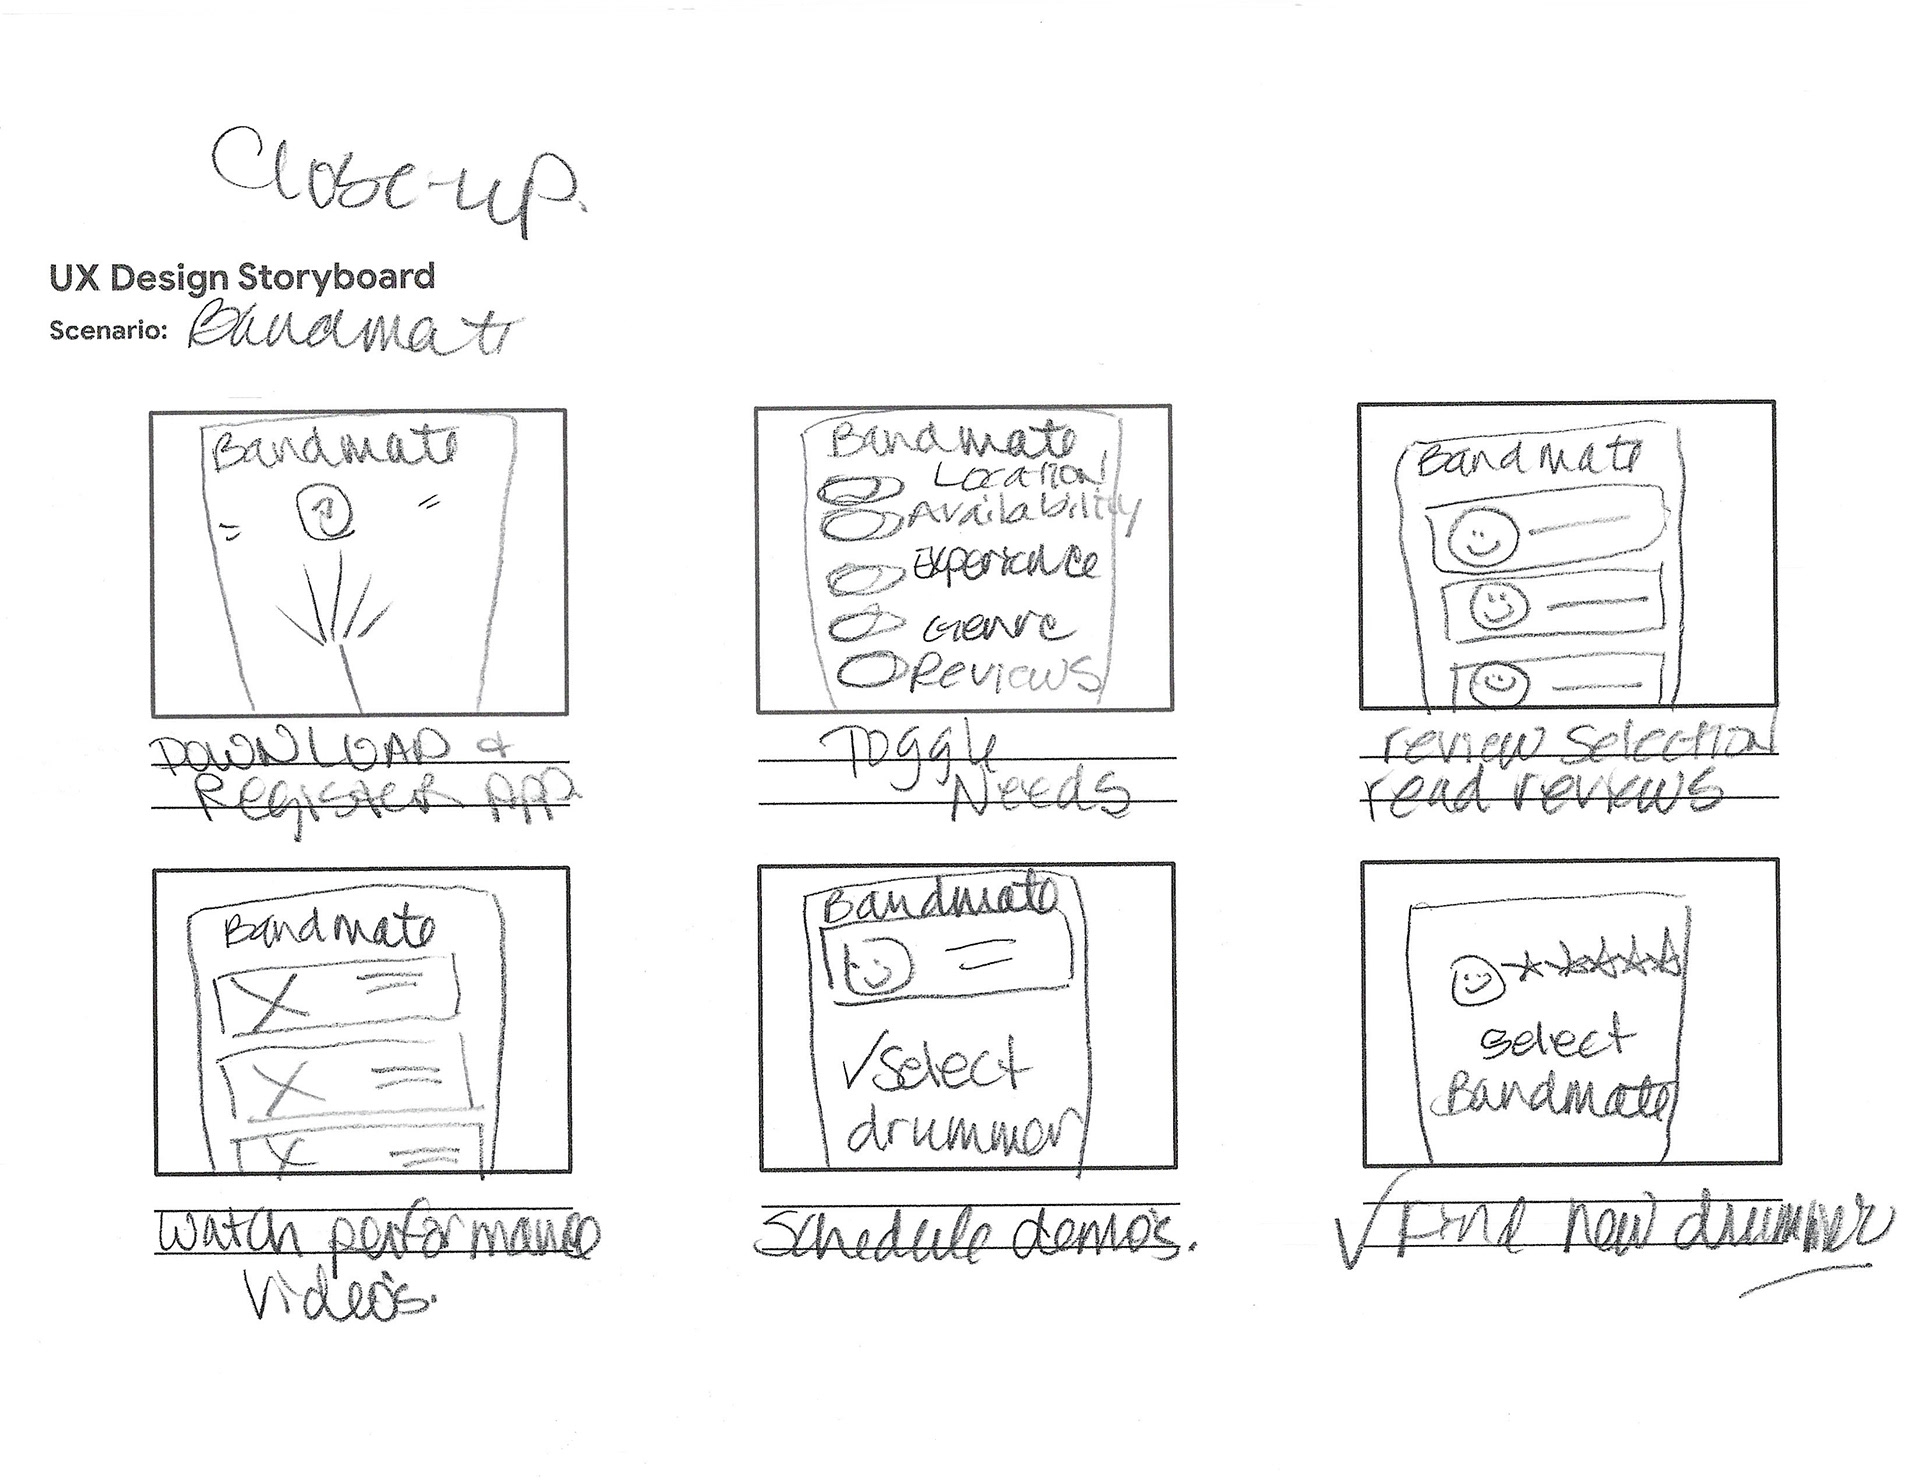 Close-up.
UX Design Storyboard
Scenario: Bandmate
Bandmate
DOWNLOAD &
REGISTER APP
Bandmate
Location
Availability
Experience
Genre
Reviews
Toggle
Needs
Bandmate
review selection
read reviews
Bandmate
Watch performance
Video's.
Bandmate
✓Select
drummer
Schedule demo's.
select
Bandmate
✓Find new drummer